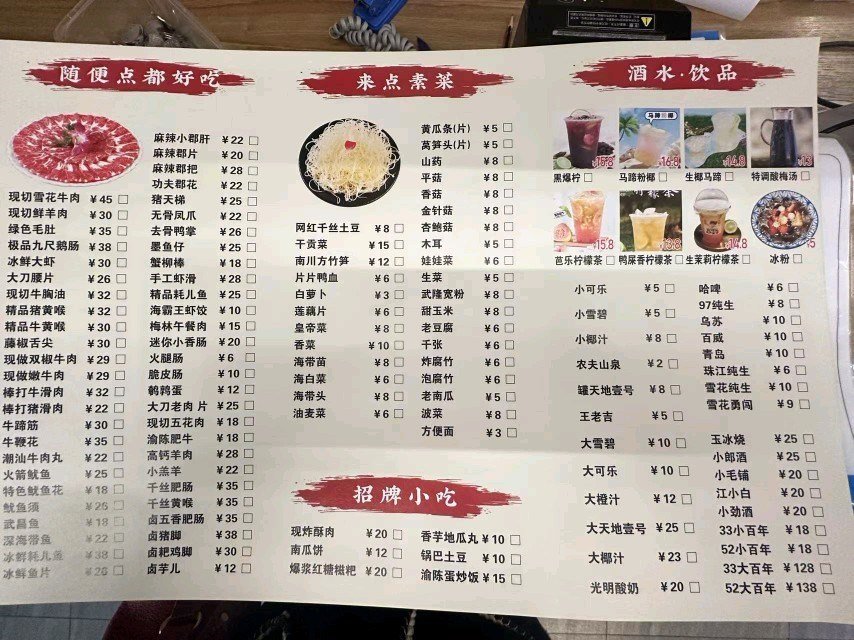 随便点都好吃
现切雪花牛肉 ¥45
现切鲜羊肉 ¥30
绿色毛肚 ¥35
极品九尺鹅肠 ¥38
冰鲜大虾 ¥30
大刀腰片 ¥26
现切牛胸油 ¥32
精品猪黄喉 ¥32
精品牛黄喉 ¥30
藤椒舌尖 ¥30
现做双椒牛肉 ¥29
现做嫩牛肉 ¥29
棒打牛滑肉 ¥32
棒打猪滑肉 ¥22
牛蹄筋 ¥30
牛鞭花 ¥35
潮汕牛肉丸 ¥22
火箭鱿鱼 ¥25
特色鱿鱼花 ¥18
鱿鱼须 ¥26
武昌鱼 ¥18
深海带鱼 ¥22
冰鲜耗儿鱼 ¥38
冰鲜鱼片 ¥26
麻辣小郡肝 ¥22
麻辣郡片 ¥20
麻辣郡把 ¥28
功夫郡花 ¥22
猪天梯 ¥25
无骨凤爪 ¥22
去骨鸭掌 ¥26
墨鱼仔 ¥25
蟹柳棒 ¥18
手工虾滑 ¥28
精品耗儿鱼 ¥25
海霸王虾饺 ¥10
梅林午餐肉 ¥15
迷你小香肠 ¥20
火腿肠 ¥6
脆皮肠 ¥10
鹌鹑蛋 ¥12
大刀老肉 片 ¥25
现切五花肉 ¥18
渝陈肥牛 ¥18
高钙羊肉 ¥28
小羔羊 ¥22
千丝肥肠 ¥35
千丝黄喉 ¥35
卤五香肥肠 ¥35
卤猪脚 ¥38
卤耙鸡脚 ¥30
卤芋儿 ¥12
来点素菜
网红千丝土豆 ¥8
干贡菜 ¥15
南川方竹笋 ¥12
片片鸭血 ¥6
白萝卜 ¥3
莲藕片 ¥6
皇帝菜 ¥8
香菜 ¥10
海带苗 ¥8
海白菜 ¥6
海带头 ¥8
油麦菜 ¥6
黄瓜条(片) ¥5
莴笋头(片) ¥5
山药 ¥8
平菇 ¥8
香菇 ¥8
金针菇 ¥8
杏鲍菇 ¥8
木耳 ¥5
娃娃菜 ¥6
生菜 ¥5
武隆宽粉 ¥8
甜玉米 ¥8
老豆腐 ¥6
千张 ¥6
炸腐竹 ¥6
泡腐竹 ¥6
老南瓜 ¥5
菠菜 ¥8
方便面 ¥3
招牌小吃
现炸酥肉 ¥20
南瓜饼 ¥12
爆浆红糖糍粑 ¥20
香芋地瓜丸 ¥10
锅巴土豆 ¥10
渝陈蛋炒饭 ¥15
酒水·饮品
¥15.8
¥16.8
¥14.8
¥13
黑爆柠
马蹄粉椰
生椰马蹄
特调酸梅汤
¥15.8
¥13.8
¥14.8
芭乐柠檬茶
鸭屎香柠檬茶
生茉莉柠檬茶
冰粉
小可乐 ¥5
小雪碧 ¥5
小椰汁 ¥8
农夫山泉 ¥2
罐天地壹号 ¥8
王老吉 ¥5
大雪碧 ¥10
大可乐 ¥10
大橙汁 ¥12
大天地壹号 ¥25
大椰汁 ¥23
光明酸奶 ¥20
哈啤 ¥6
97纯生 ¥8
乌苏 ¥10
百威 ¥10
青岛 ¥10
珠江纯生 ¥6
雪花纯生 ¥10
雪花勇闯 ¥9
玉冰烧 ¥25
小郎酒 ¥25
小毛铺 ¥20
江小白 ¥20
小劲酒 ¥20
33小百年 ¥18
52小百年 ¥18
33大百年 ¥128
52大百年 ¥138